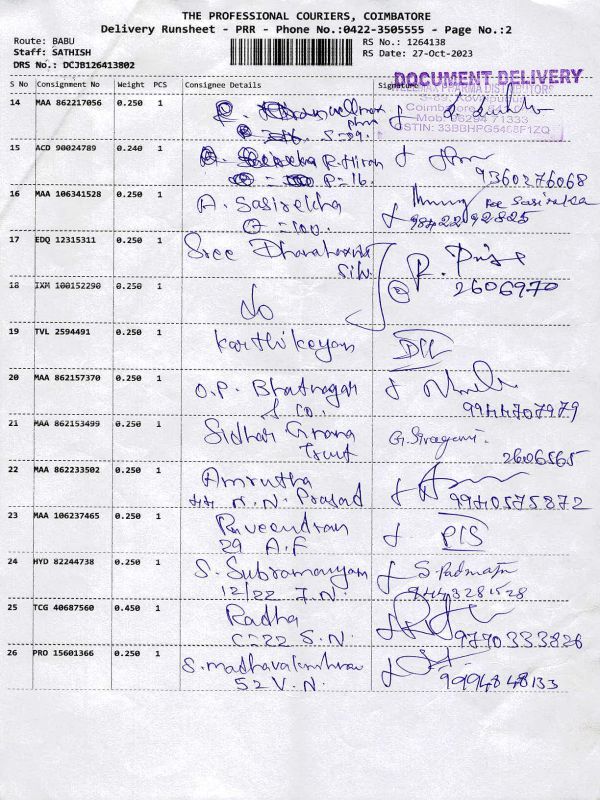 THE PROFESSIONAL COURIERS, COIMBATORE
Delivery Runsheet - PRR - Phone No.:0422-3505555 - Page No.:2
Route: BABU
Staff: SATHISH
DRS No.: DCJB126413802
RS No.: 1264138
RS Date: 27-Oct-2023
DOCUMENT DELIVERY
S No Consignment No Weight PCS Consignee Details Signature
PHARMA DISTRIBUTORS
Coimbatore
Mob: 98294 71333
14 MAA 862217056 0.250 1
15 ACD 90024789 0.240 1 R. Hiran
P=16. 9360276068
16 MAA 106341528 0.250 1 A. Sasirekha For Sasirekha
9842292825
17 EDQ 12315311 0.250 1 Sree R. Priya
18 IXM 100152290 0.250 1 Do 2606970
19 TVL 2594491 0.250 1 Karthikeyan DIL
20 MAA 862157370 0.250 1 O.P. Bhatnagar
& Co. 9944707979
21 MAA 862153499 0.250 1 Sidhar Gnana G. Sivagami.
Trust 2606565
22 MAA 862233502 0.250 1 Amrutha
44 N.N. Prasad 9940575872
23 MAA 106237465 0.250 1 Raveendran PIS
29 A.F
24 HYD 82244738 0.250 1 S. Subramaniyam S. Padmat
12/22 7.N. 9443281528
25 TCG 40687560 0.450 1 Radha
C=22 S.N. 9790333826
26 PRO 15601366 0.250 1
52 V.N. 9994848133